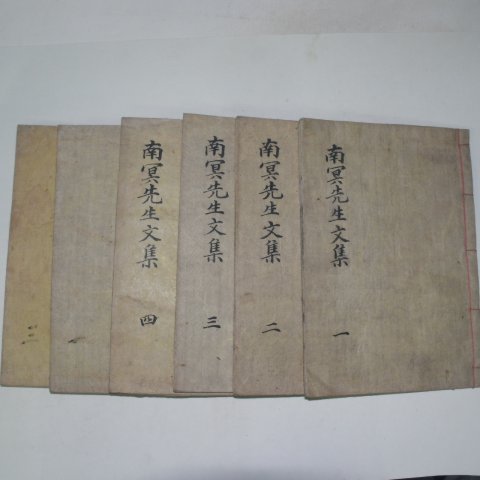 南冥先生文集 一
南冥先生文集 二
南冥先生文集 三
南冥先生文集 四